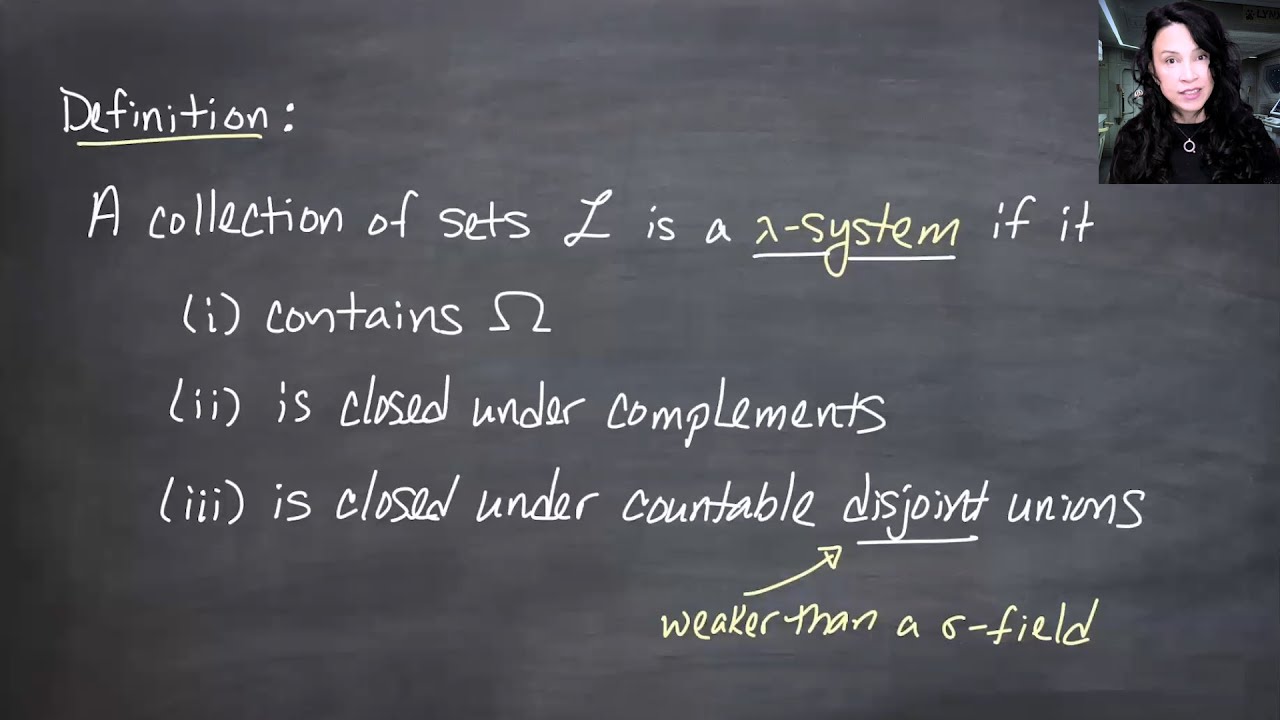 Definition:
A collection of sets ℒ is a λ-system if it
(i) contains Ω
(ii) is closed under complements
(iii) is closed under countable disjoint unions
weaker than a σ-field